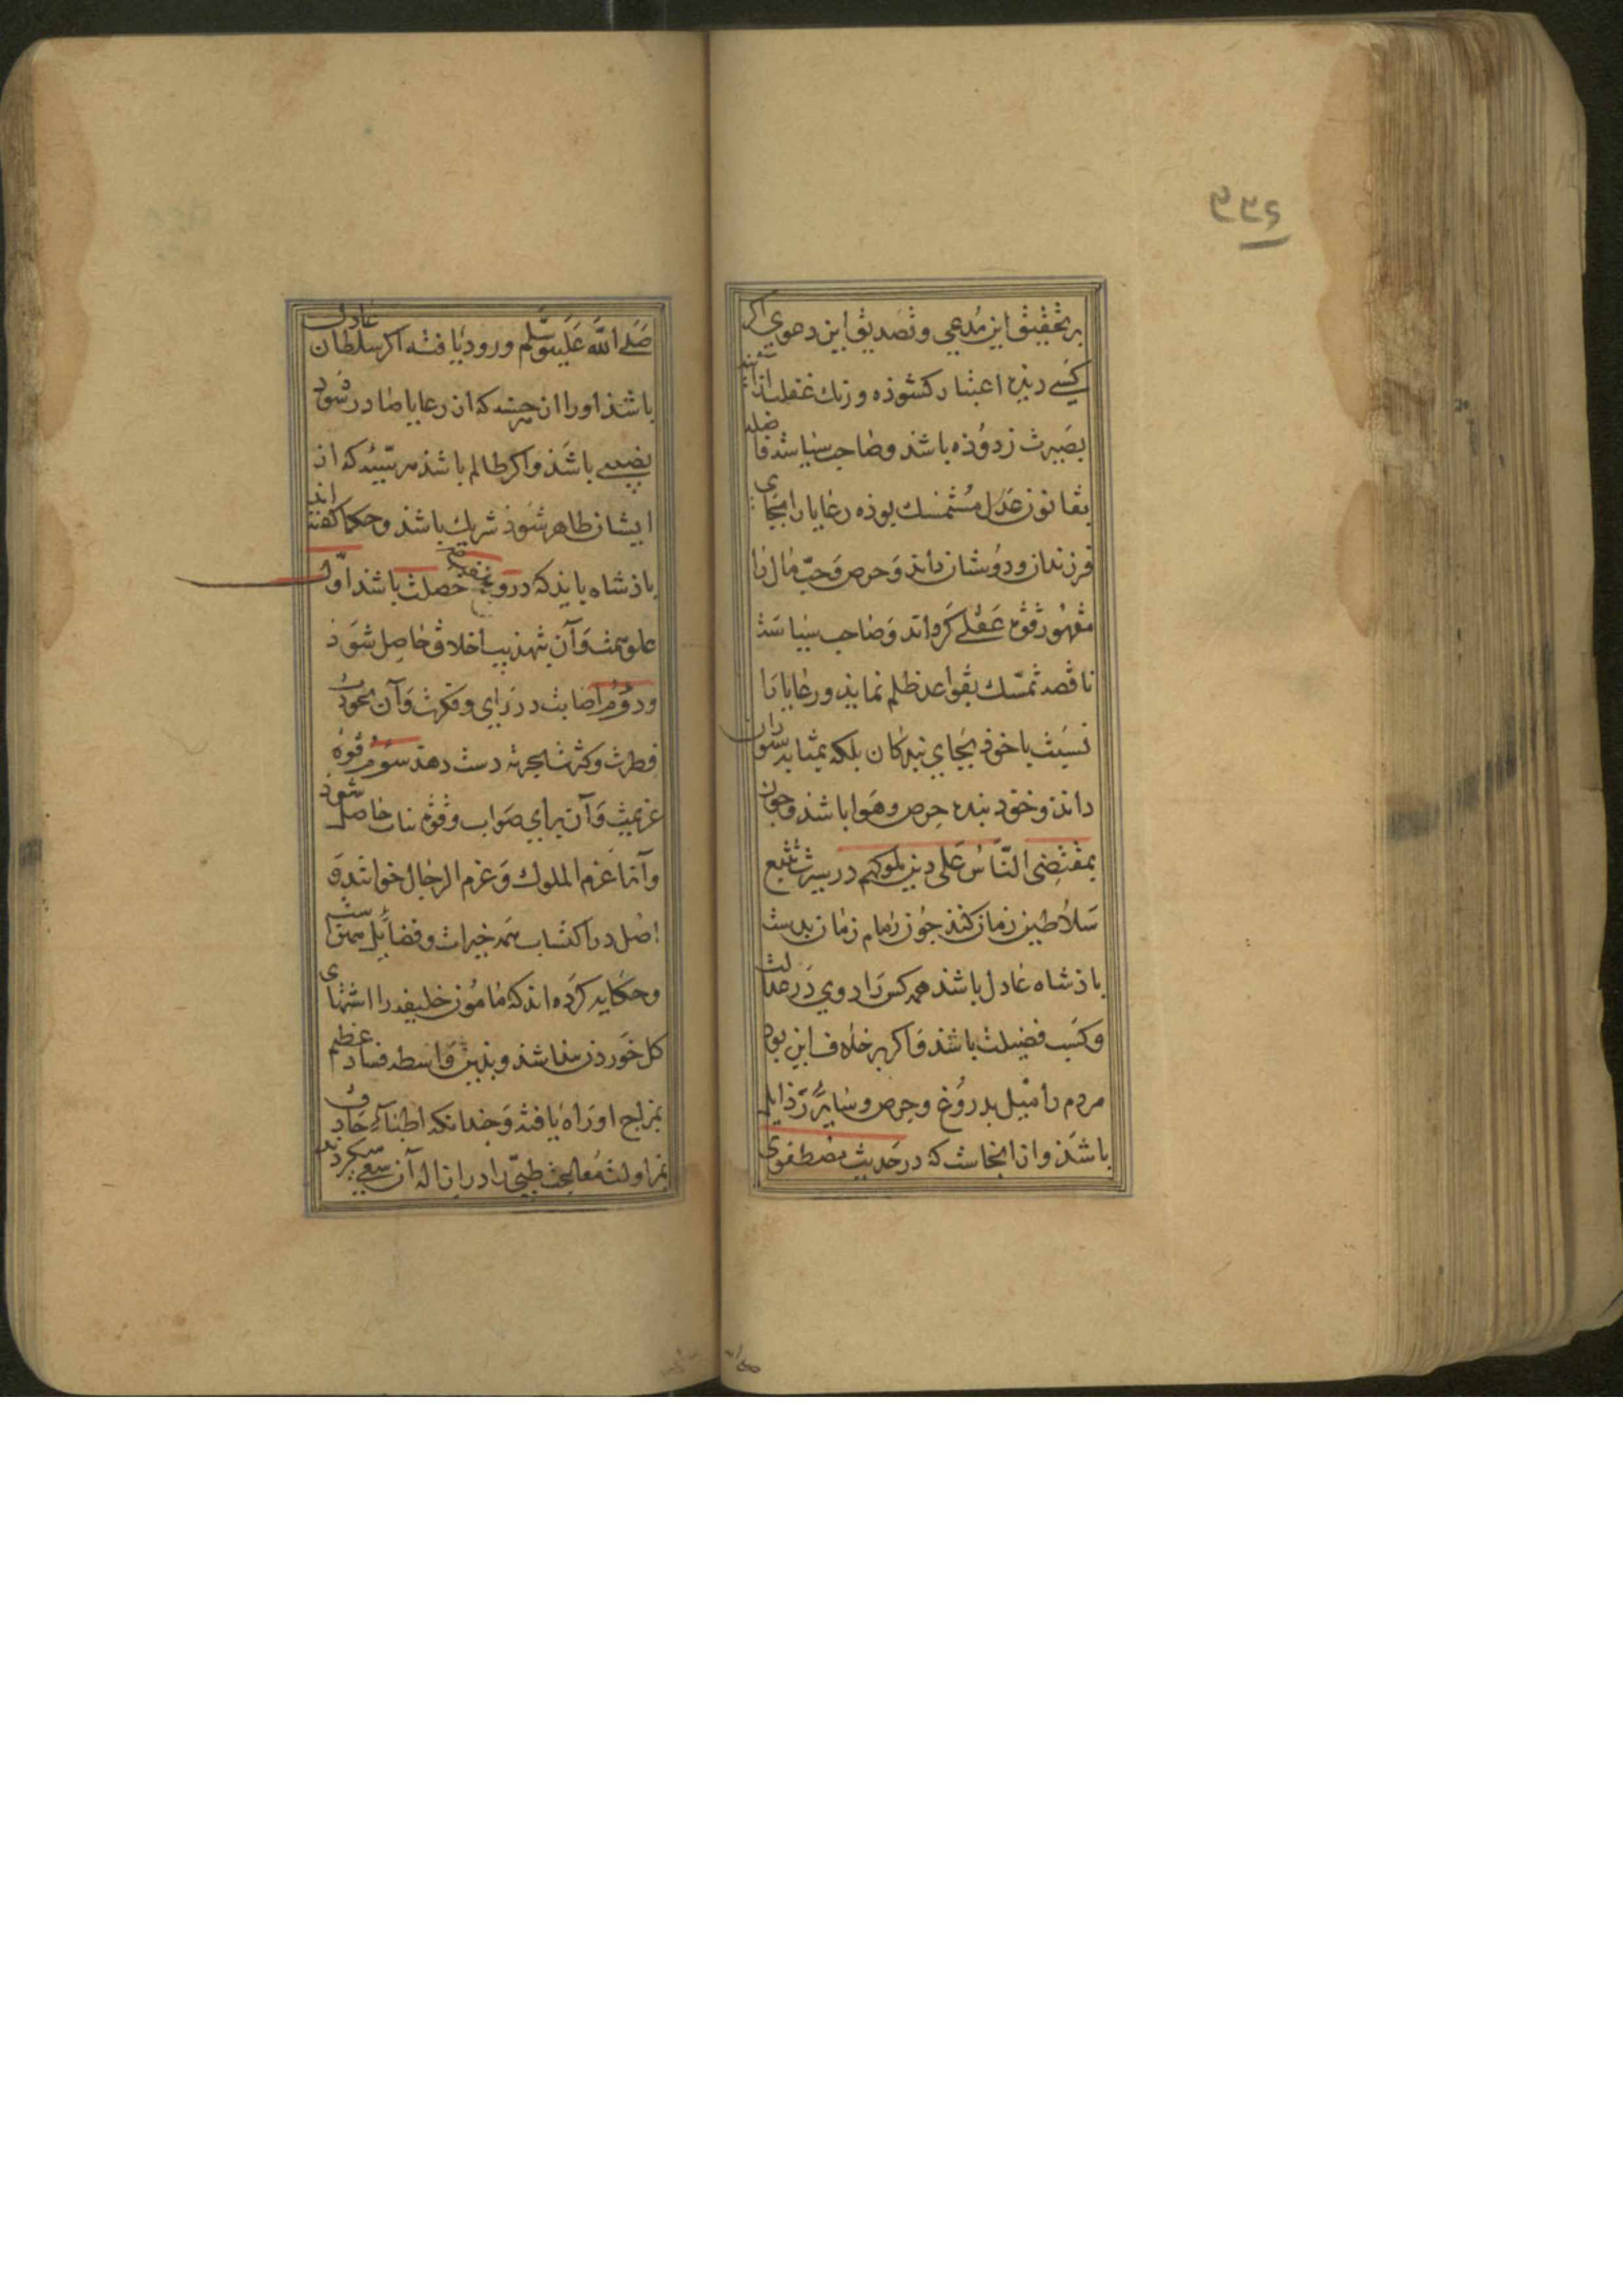 ۳۳۶
بر تحقیق این مدعی و تصدیق این دعوی اکر
کسی دیده اعتبار کشوذه و زنک غفلت از آینه
بصیرت زدوده باشد و صاحب سیاست فاضله
بقانون عدل متمسک بوذه رعایا را بجای
فرزندان و دوستان داند و حرص و حب مال را
مقهور قوه عقلی کرداند و صاحب سیاست
ناقصه تمسک بقواعد ظلم نماید و رعایا را
نسبت با خوذ بجای بندکان بلکه بمثابه ستوران
داند و خود بنده حرص و هوا باشد و چون
بمقتضی الناس علی دین ملوکهم در سیرت تتبع
سلاطین زمان کنند چون زمام زمان بدست
باذشاه عادل باشد همه کس را روی در عدالت
و کسب فضیلت باشد و اکر بر خلاف این بود
مردم را میل بدروغ و حرص و سایر رذایل
باشذ و از اینجاست که در حدیث مصطفوی
صلی الله علیه و سلم ورود یافته اکر سلطان عادل
باشذ او را از حسنه که از رعایا صادر شود
نصیبی باشذ و اکر ظالم باشذ در سیئه که از
ایشان ظاهر شود شریک باشذ و حکما کفته اند
باذشاه بایذ که درو هفت خصلت باشد اول
علو همت و آن بتهذیب اخلاق حاصل شوذ
و دوم اصابت در رای و فکرت و آن بجودت
فطرت و کثرت تجربه دست دهد سوم قوه
عزیمت و آن برای صواب و قوه ثبات حاصل شود
و آنرا عزم الملوک و عزم الرجال خوانند و
اصل در اکتساب همه خیرات و فضایل همین است
و حکایه کرده اند که مامون خلیفه را اشتهای
کل خوردن پیدا شد و بدین واسطه فساد عظیم
بمزاج او راه یافت و چندانکه اطباء حاذق
بمزاولت معالجت طبی را در ازاله آن سعی میکردند